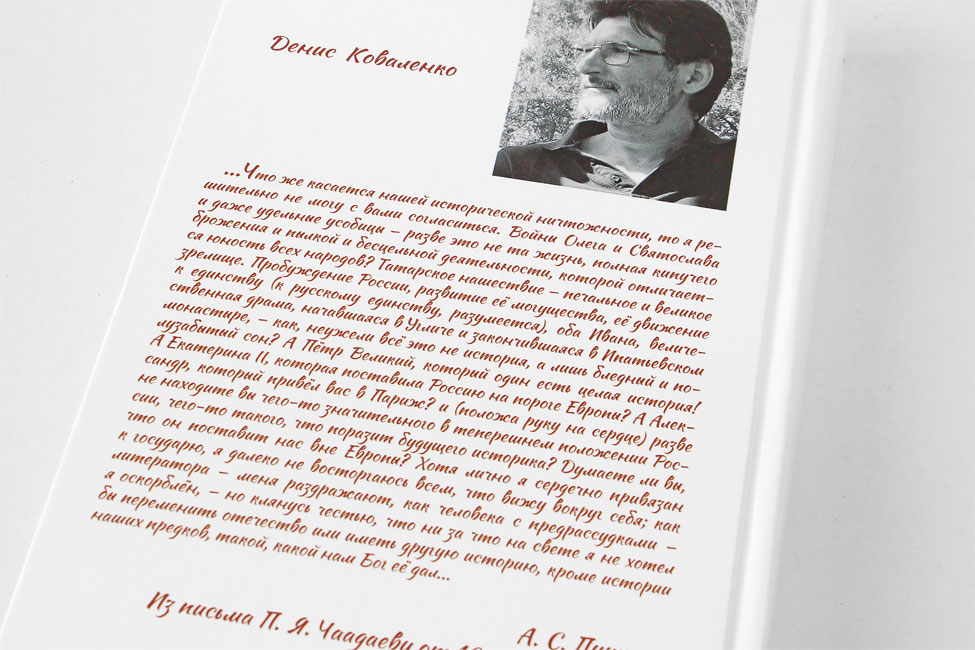 Денис Коваленко
...Что же касается нашей исторической ничтожности, то я ре-
шительно не могу с вами согласиться. Войны Олега и Святослава
и даже удельные усобицы – разве это не та жизнь, полная кипучего
брожения и пылкой и бесцельной деятельности, которой отличает-
ся юность всех народов? Татарское нашествие – печальное и великое
зрелище. Пробуждение России, развитие её могущества, её движение
к единству (к русскому единству, разумеется), оба Ивана, величе-
ственная драма, начавшаяся в Угличе и закончившаяся в Ипатьевском
монастыре, – как, неужели всё это не история, а лишь бледный и по-
лузабытый сон? А Пётр Великий, который один есть целая история!
А Екатерина II, которая поставила Россию на пороге Европы? А Алек-
сандр, который привёл вас в Париж? и (положа руку на сердце) разве
не находите вы чего-то значительного в теперешнем положении Рос-
сии, чего-то такого, что поразит будущего историка? Думаете ли вы,
что он поставит нас вне Европы? Хотя лично я сердечно привязан
к государю, я далеко не восторгаюсь всем, что вижу вокруг себя; как
литератора – меня раздражают, как человека с предрассудками –
я оскорблён, – но клянусь честью, что ни за что на свете я не хотел
бы переменить отечество или иметь другую историю, кроме истории
наших предков, такой, какой нам Бог её дал...
А. С.
Из письма П. Я. Чаадаеву от